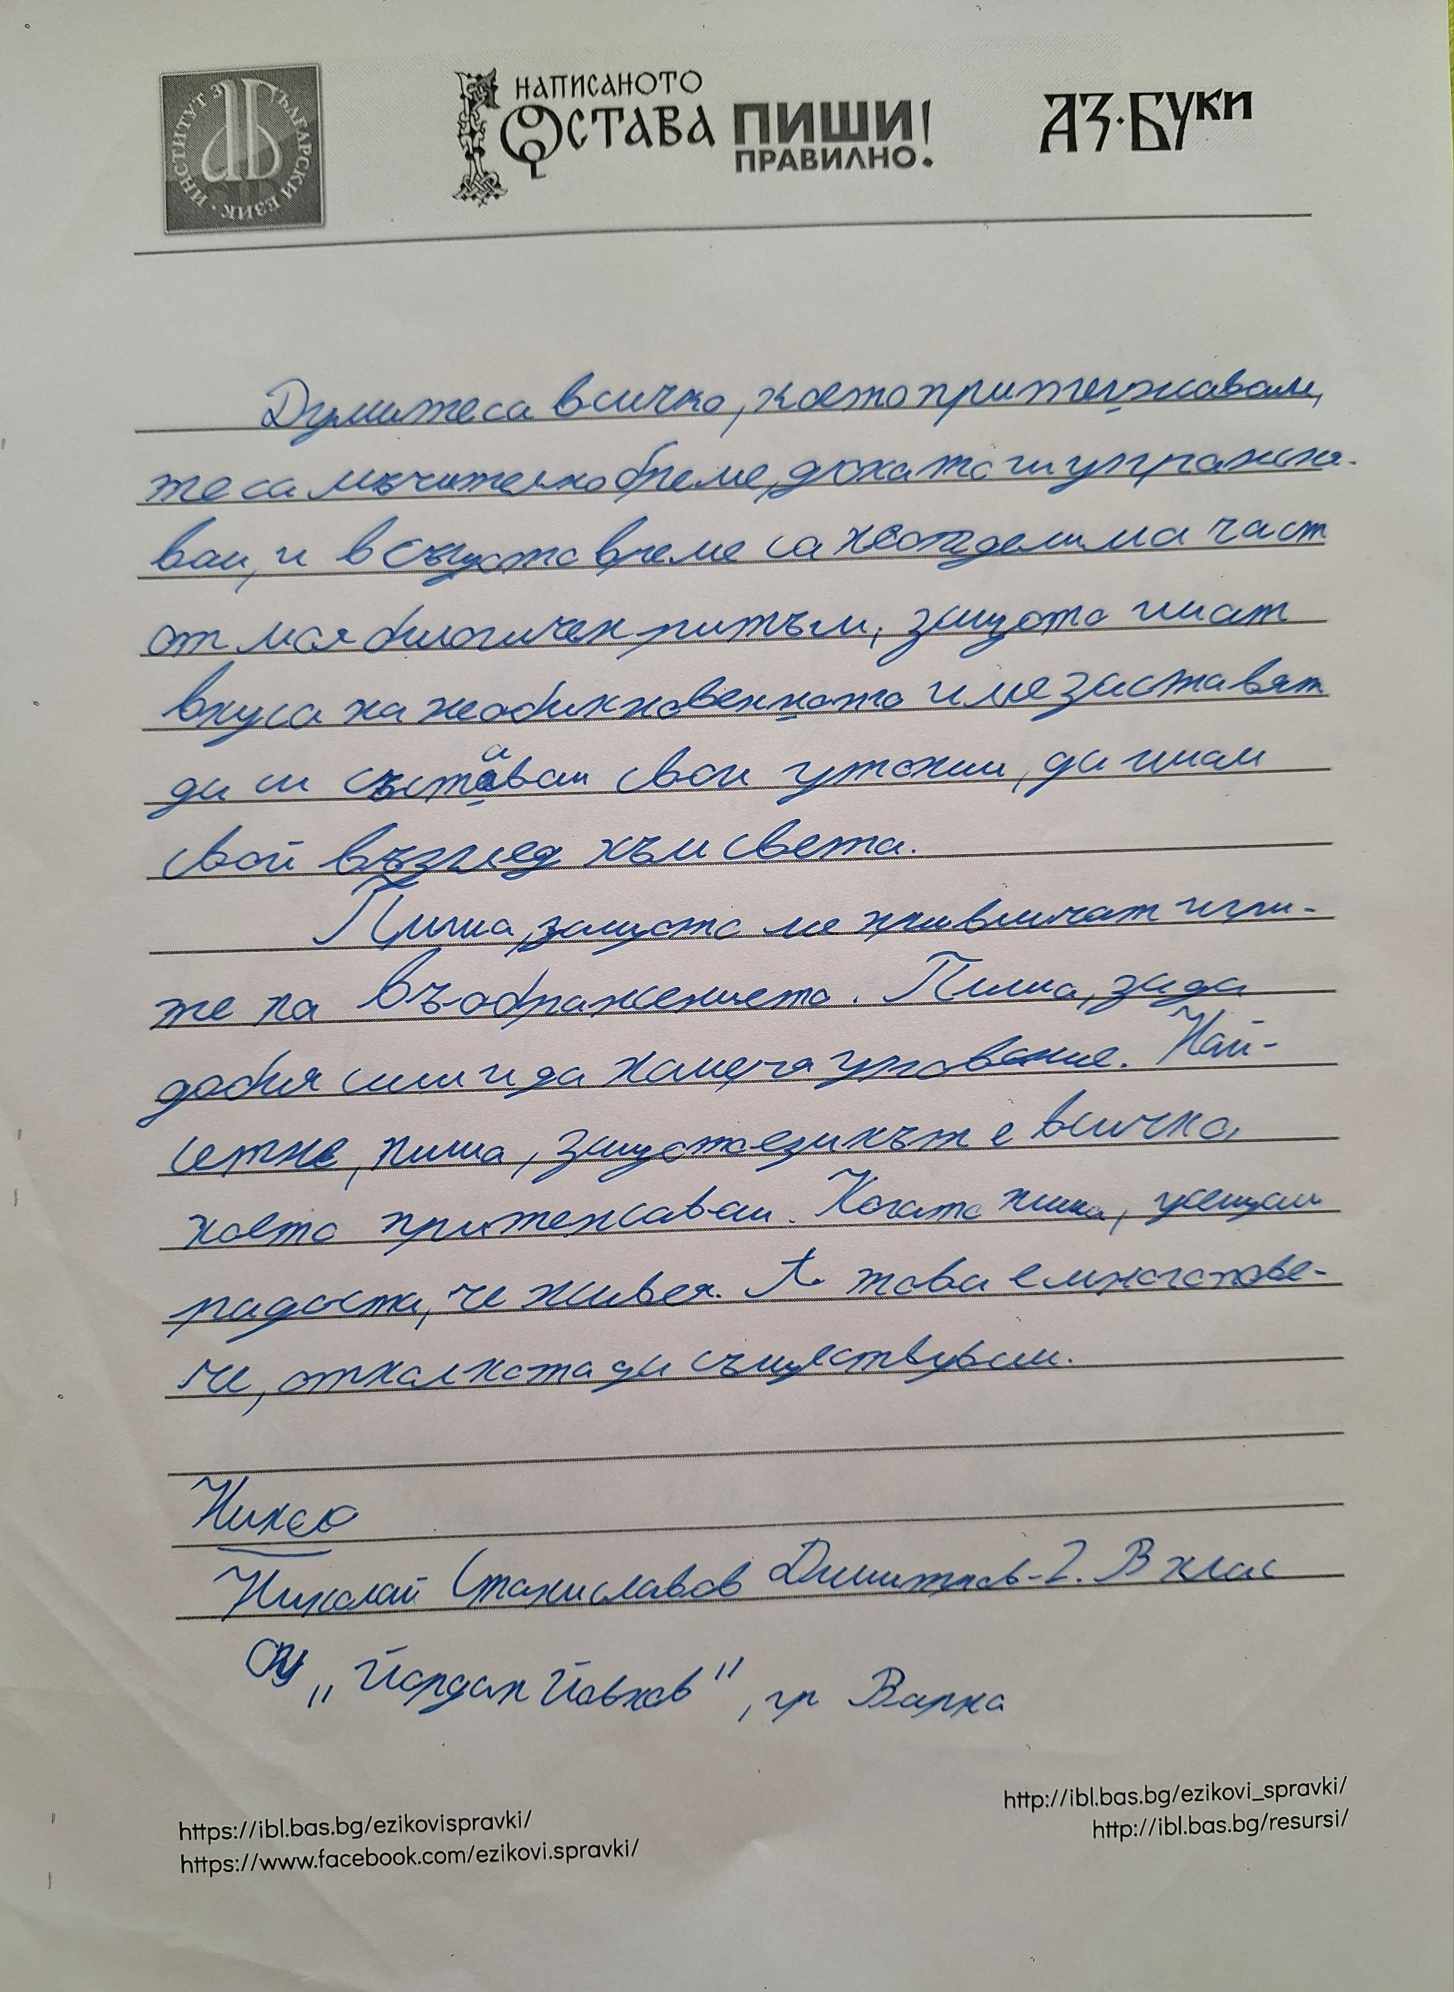 ИНСТИТУТ ЗА БЪЛГАРСКИ ЕЗИК
НАПИСАНОТО
ОСТАВА
ПИШИ
ПРАВИЛНО!
АЗ·БУКИ
Думите са всичко, което притежавам,
те са мъчително бреме, докато ги упражня-
вам, и в същото време са неотделима част
от моя биологичен ритъм, защото имат
вкуса на необикновеното и ме заставят
да си съставам свои утопии, да имам
свой възглед към света.
Пиша, защото ме привличат игри-
те на въображението. Пиша, за да
добия сили и да намеря упование. Най-
сетне, пиша, защото езикът е всичко,
което притежавам. Когато пиша, усещам
радостта, че живея. А това е много пове-
че, отколкото да съществувам.
Николай Станиславов Димитров - 2. В клас
ОУ „Йордан Йовков", гр Варна
https://ibl.bas.bg/ezikovispravki/
https://www.facebook.com/ezikovi.spravki/
http://ibl.bas.bg/ezikovi_spravki/
http://ibl.bas.bg/resursi/